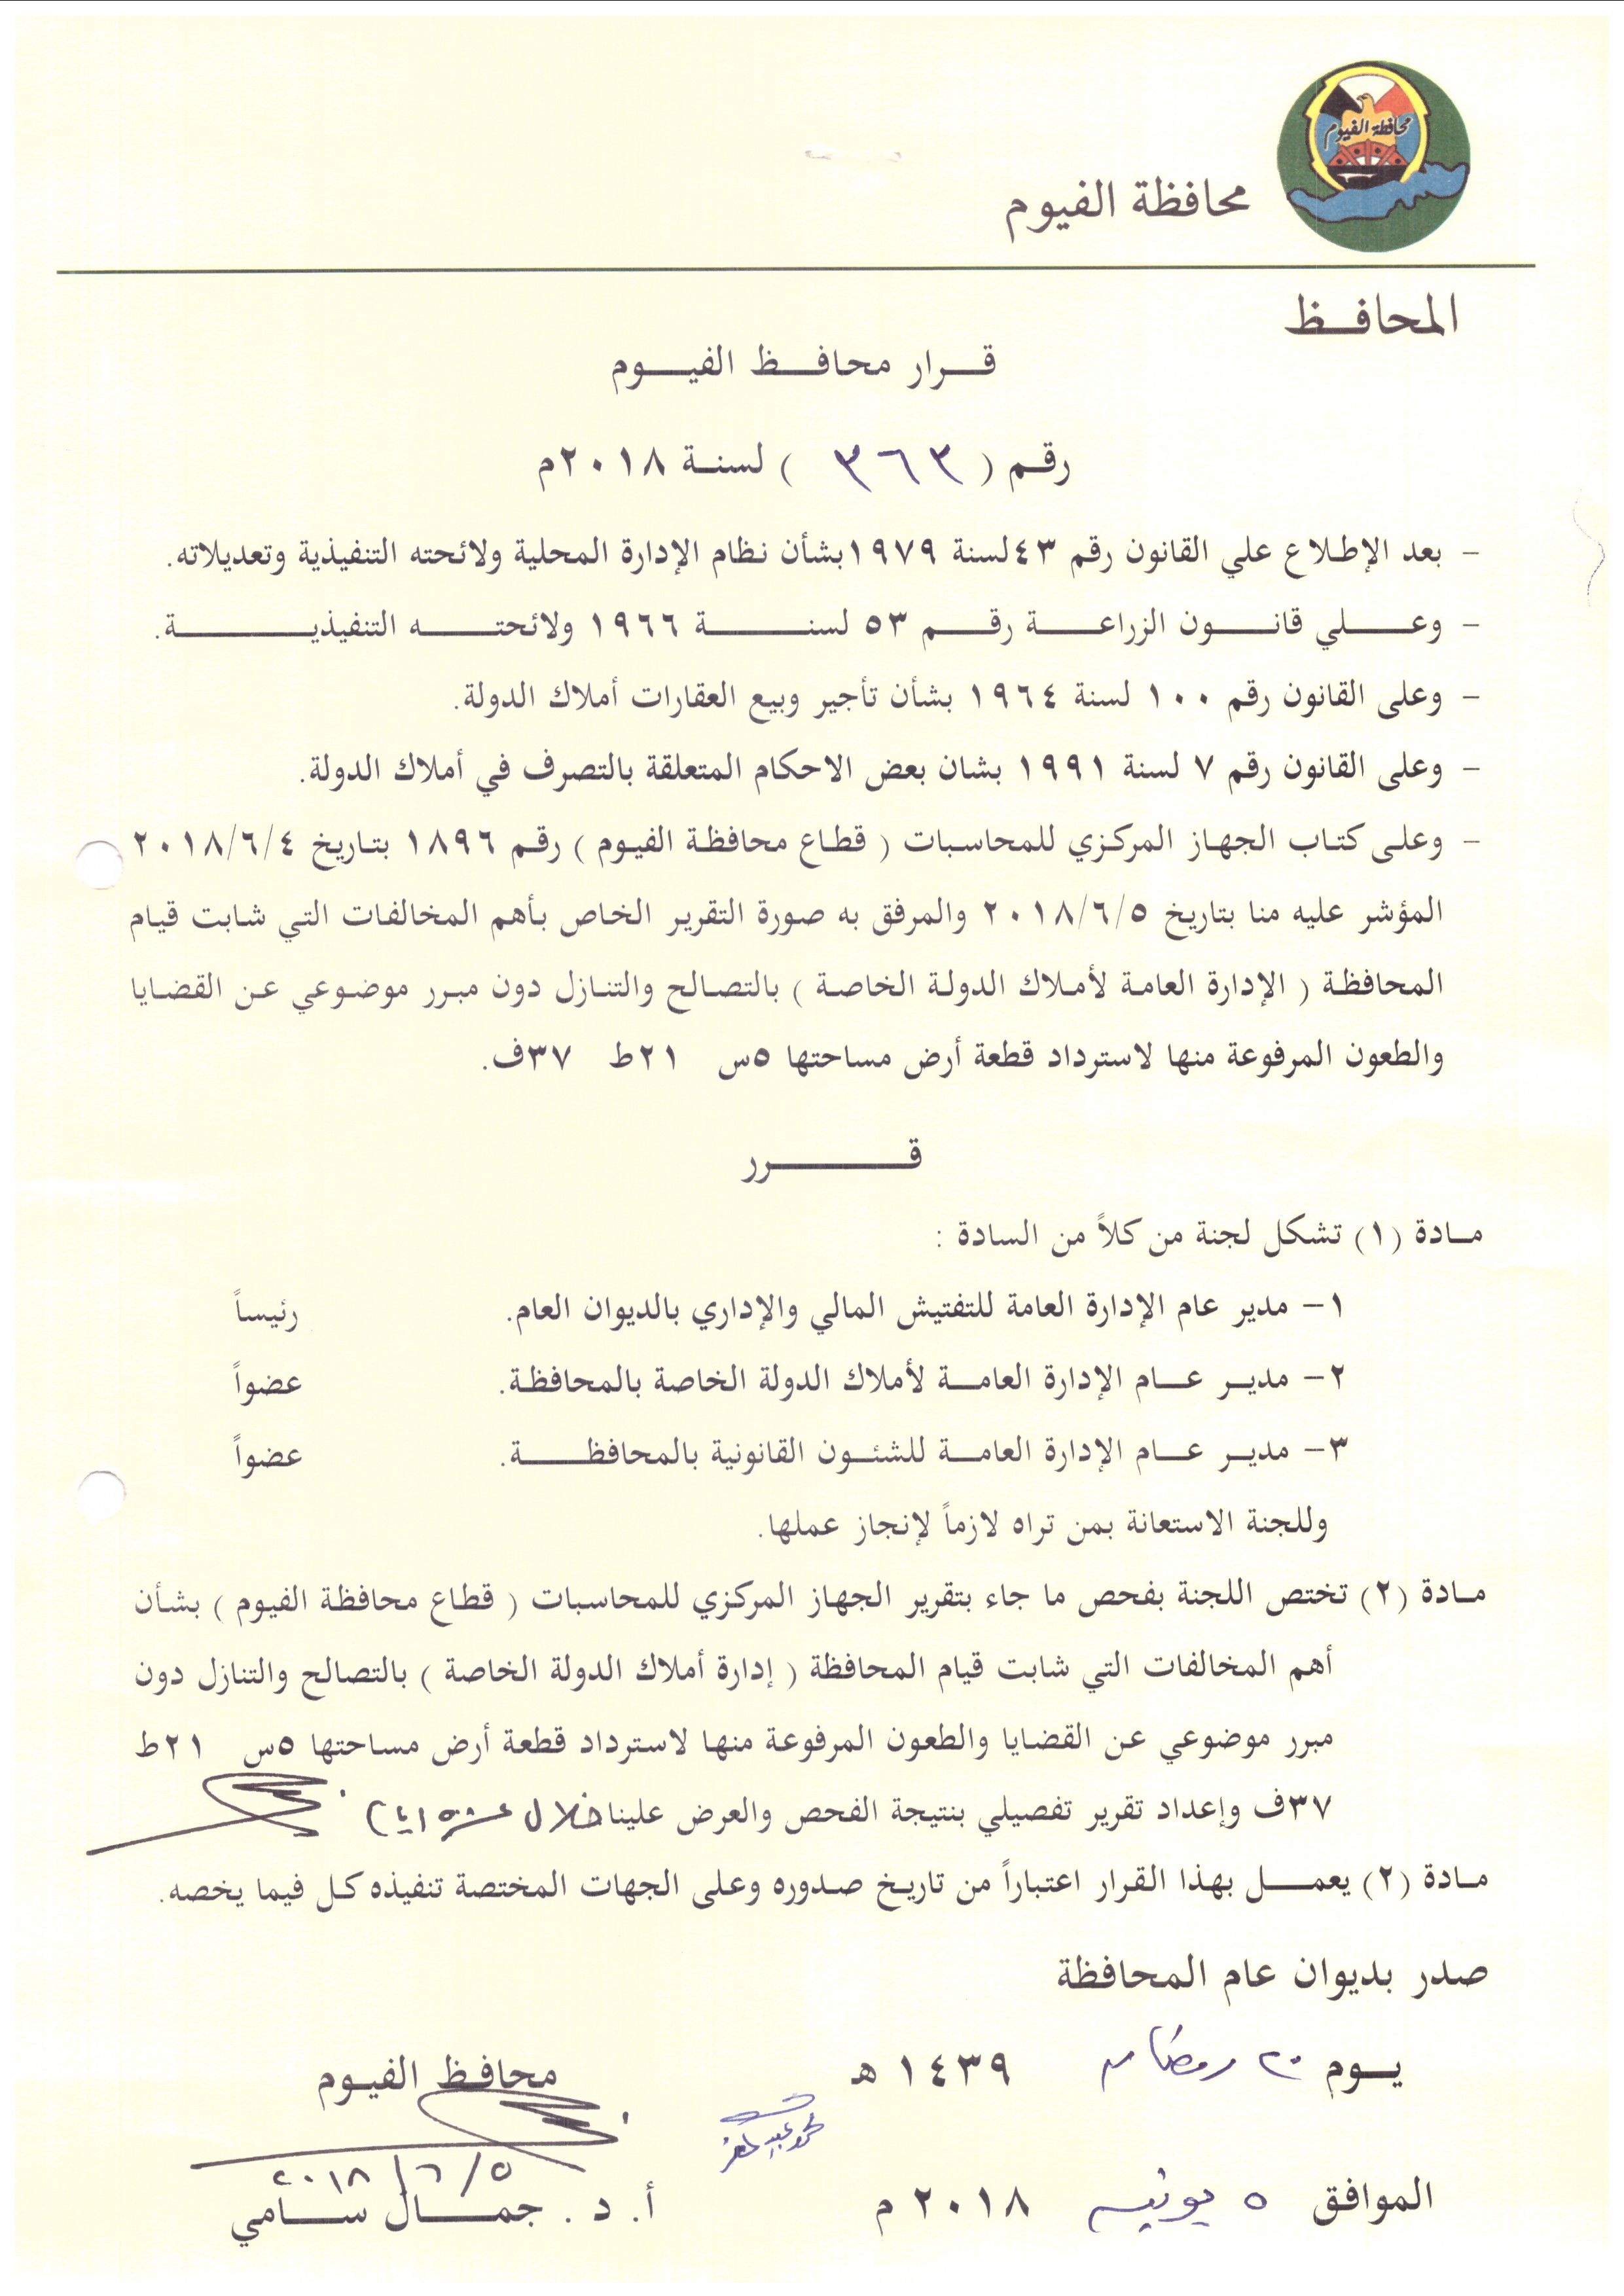 محافظة الفيوم
محافظة الفيوم
المحافظ
قرار محافظ الفيوم
رقم ( ٣٦٣ ) لسنة ٢٠١٨م
- بعد الإطلاع علي القانون رقم ٤٣لسنة ١٩٧٩بشأن نظام الإدارة المحلية ولائحته التنفيذية وتعديلاته.
- وعلي قانون الزراعة رقم ٥٣ لسنة ١٩٦٦ ولائحته التنفيذية.
- وعلى القانون رقم ١٠٠ لسنة ١٩٦٤ بشأن تأجير وبيع العقارات أملاك الدولة.
- وعلى القانون رقم ٧ لسنة ١٩٩١ بشان بعض الاحكام المتعلقة بالتصرف في أملاك الدولة.
- وعلى كتاب الجهاز المركزي للمحاسبات ( قطاع محافظة الفيوم ) رقم ١٨٩٦ بتاريخ ٢٠١٨/٦/٤
المؤشر عليه منا بتاريخ ٢٠١٨/٦/٥ والمرفق به صورة التقرير الخاص بأهم المخالفات التي شابت قيام
المحافظة ( الإدارة العامة لأملاك الدولة الخاصة ) بالتصالح والتنازل دون مبرر موضوعي عن القضايا
والطعون المرفوعة منها لاسترداد قطعة أرض مساحتها ٥س ٢١ط ٣٧ف.
قرر
مادة (١) تشكل لجنة من كلاً من السادة :
١- مدير عام الإدارة العامة للتفتيش المالي والإداري بالديوان العام. رئيساً
٢- مدير عام الإدارة العامة لأملاك الدولة الخاصة بالمحافظة. عضواً
٣- مدير عام الإدارة العامة للشئون القانونية بالمحافظة. عضواً
وللجنة الاستعانة بمن تراه لازماً لإنجاز عملها.
مادة (٢) تختص اللجنة بفحص ما جاء بتقرير الجهاز المركزي للمحاسبات ( قطاع محافظة الفيوم ) بشأن
أهم المخالفات التي شابت قيام المحافظة ( إدارة أملاك الدولة الخاصة ) بالتصالح والتنازل دون
مبرر موضوعي عن القضايا والطعون المرفوعة منها لاسترداد قطعة أرض مساحتها ٥س ٢١ط
٣٧ف وإعداد تقرير تفصيلي بنتيجة الفحص والعرض علينا خلال عشرة أيام
مادة (٢) يعمل بهذا القرار اعتباراً من تاريخ صدوره وعلى الجهات المختصة تنفيذه كل فيما يخصه.
صدر بديوان عام المحافظة
يوم ٢٠ رمضان ١٤٣٩ هـ
محافظ الفيوم
٢٠١٨/٦/٥
الموافق ٥ يونيه ٢٠١٨ م
أ. د . جمال سامي